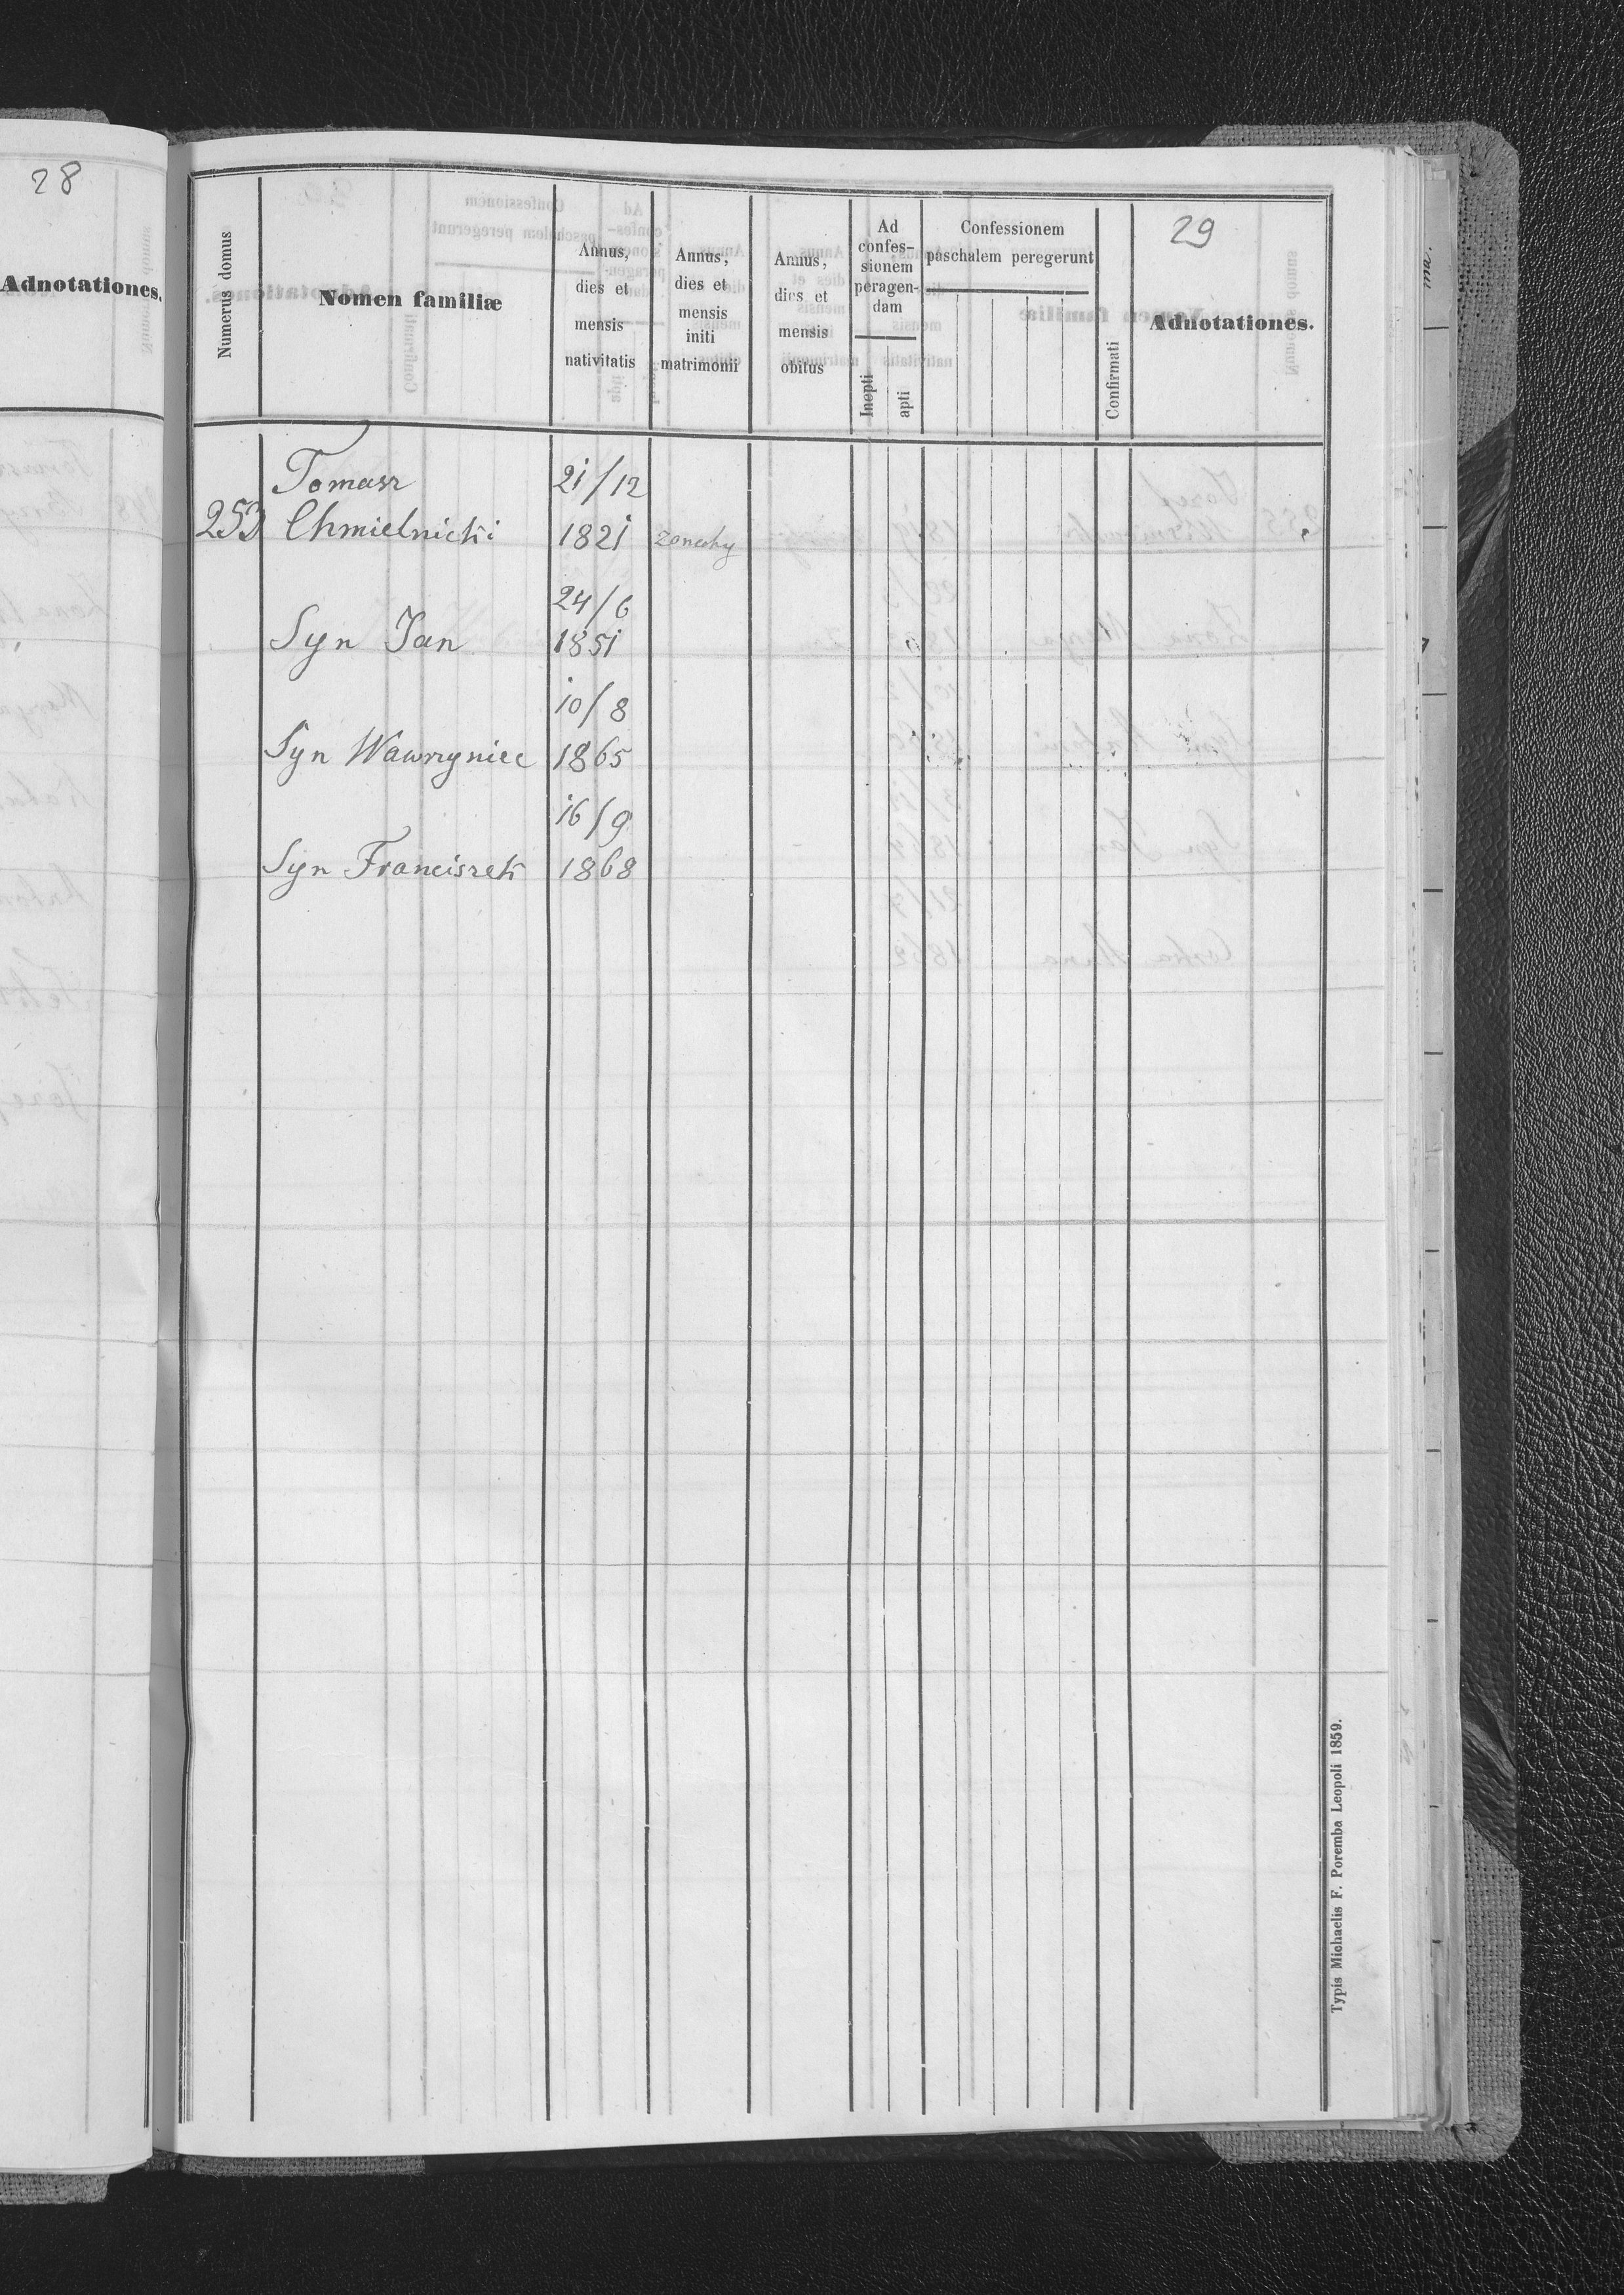 28
Adnotationes.
29
Numerus domus
Nomen familiæ
Annus,
dies et
mensis
nativitatis
Annus,
dies et
mensis
initi
matrimonii
Annus,
dies et
mensis
obitus
Ad
confes-
sionem
peragen-
dam
Inepti
apti
Confessionem
paschalem peregerunt
Confirmati
Adnotationes.
Tomasz 21/12
253 Chmielnicki 1821
24/6
Syn Jan 1851
10/8
Syn Wawrzyniec 1865
16/9
Syn Franciszek 1868
Typis Michaelis F. Poremba Leopoli 1859.